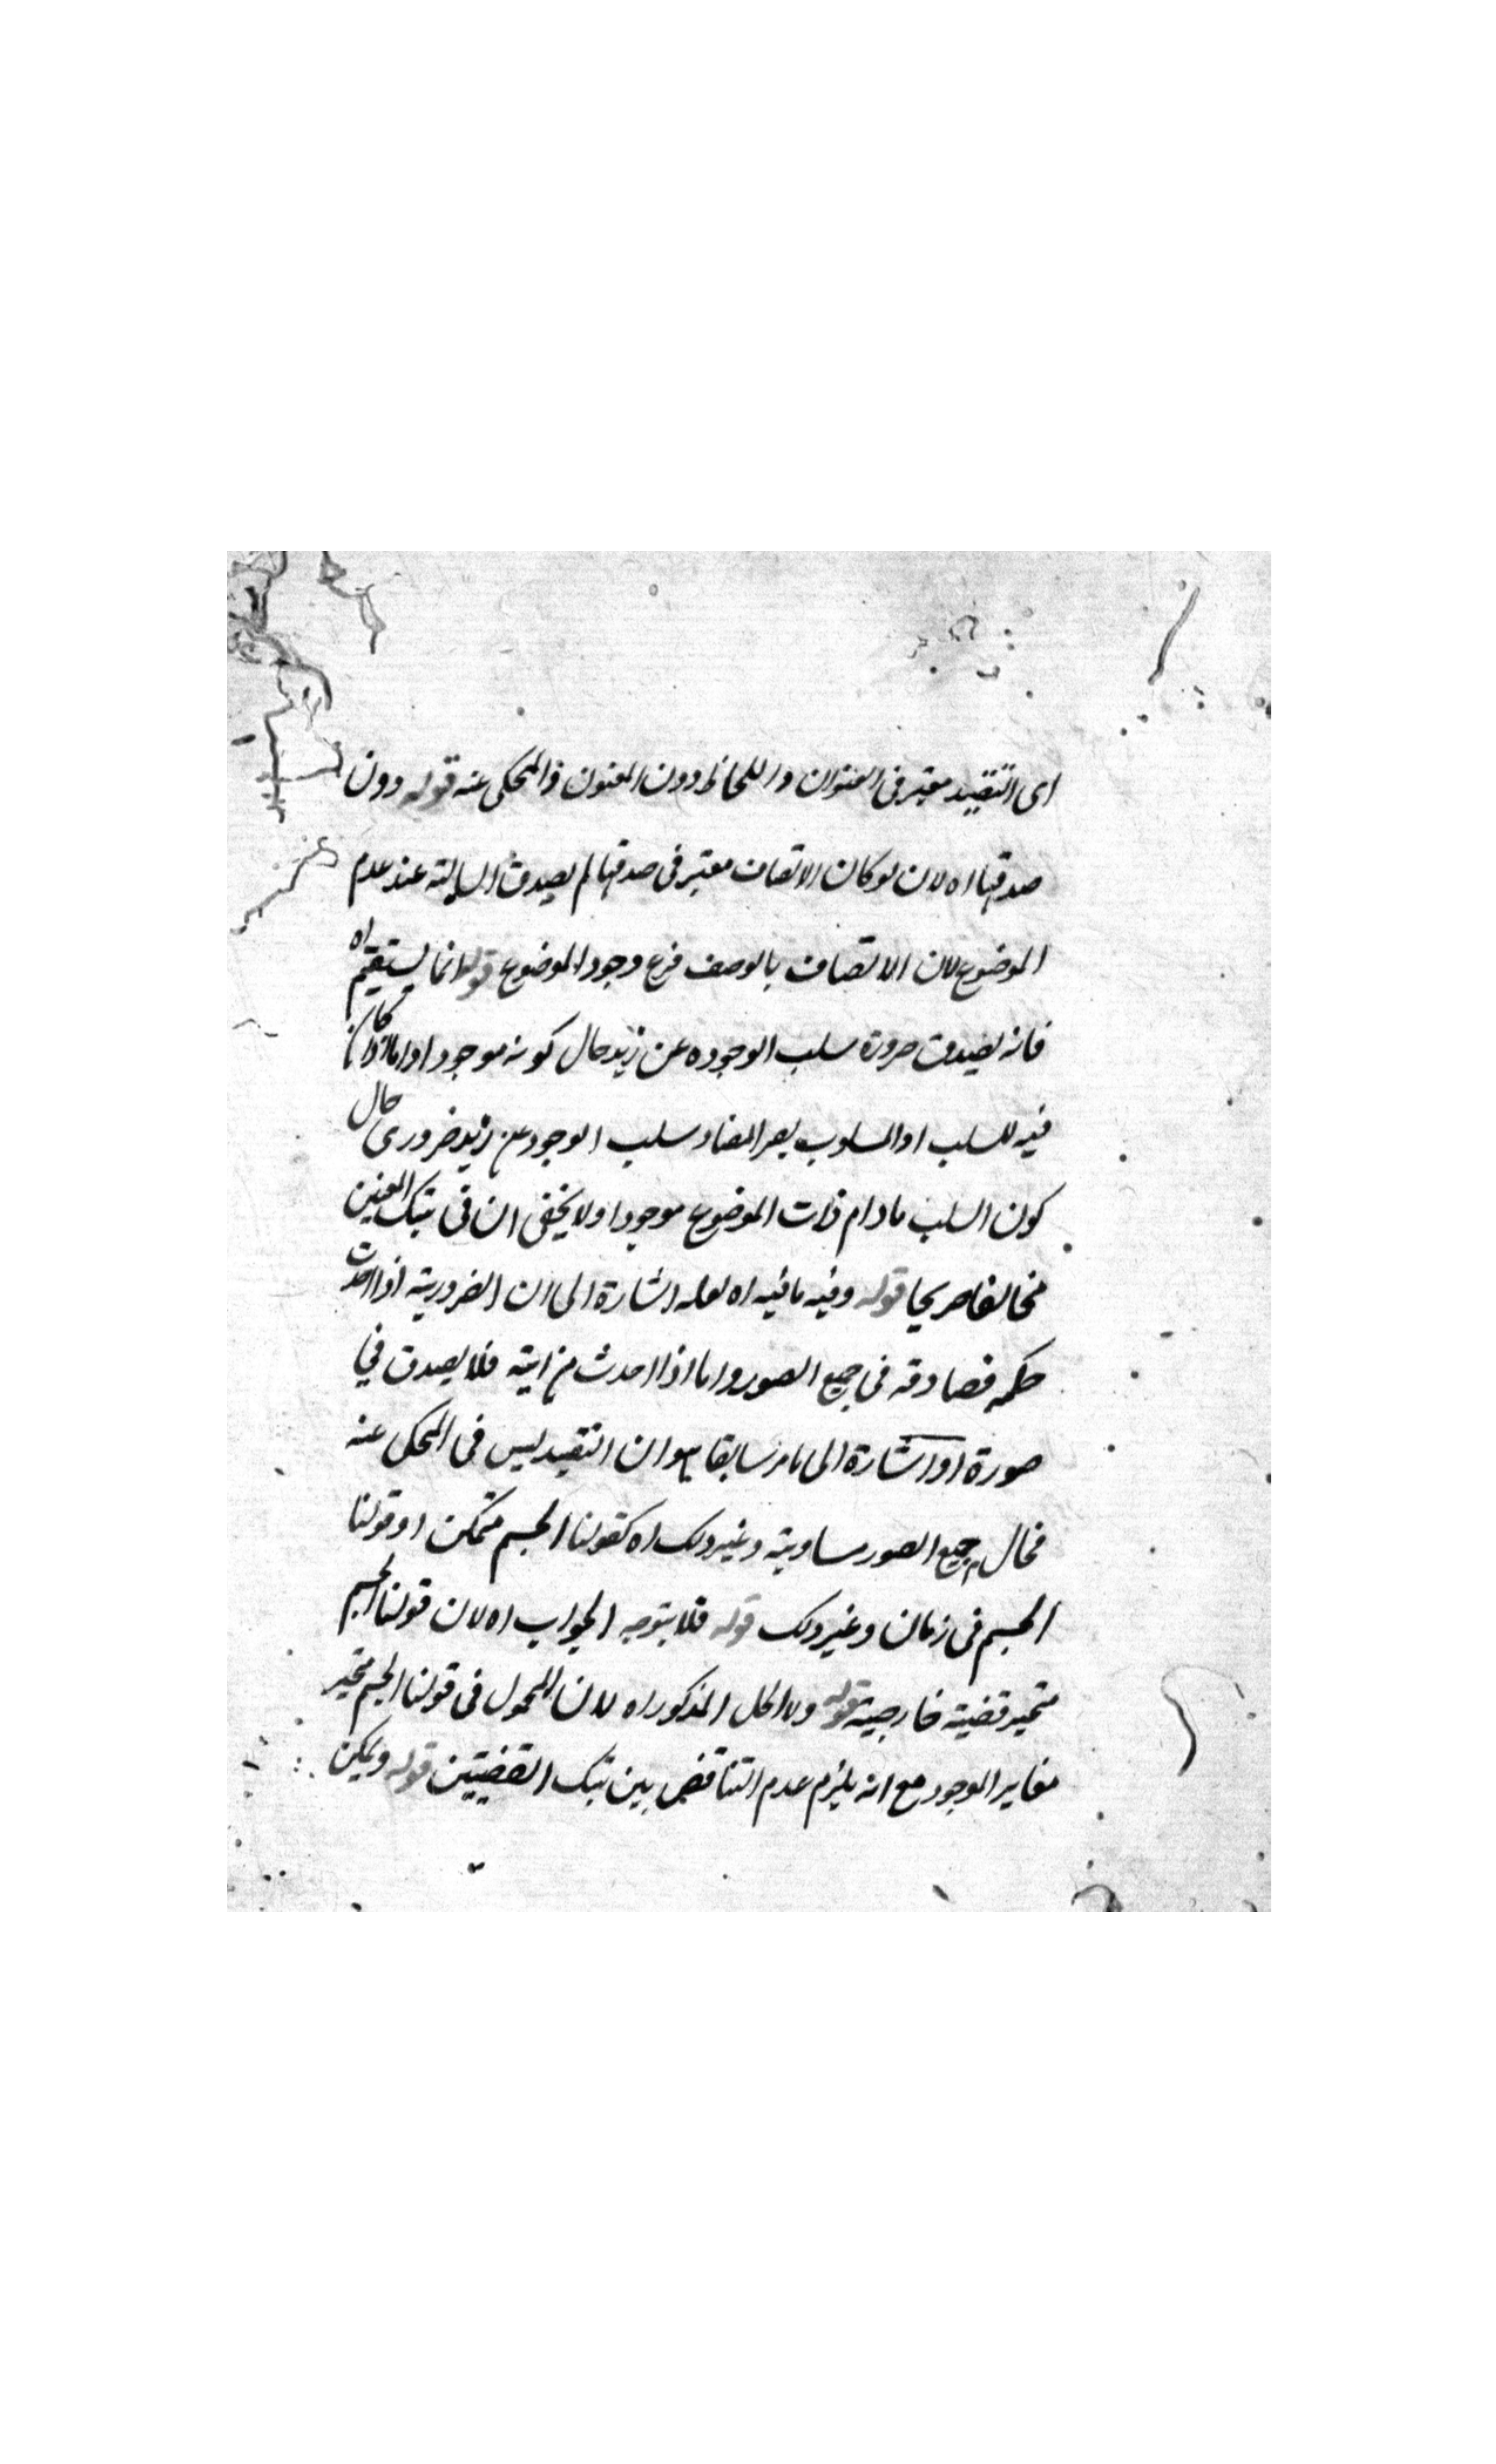 اى التقييد معتبر فى العنوان واللحاظ دون المعنون والمحكى عنه قوله دون
صدقها اه لان لو كان الاتصاف معتبر فى صدقها لم يصدق السالبة عند عدم
الموضوع لان الاتصاف بالوصف فرع وجود الموضوع قوله انما يستقيم اه
فانه يصدق ضرورة سلب الوجوده عن زيد حال كونه موجودا واما اذا كان
فيه للسلب او المسلوب يصر المفاد سلب الوجود عن زيد ضرورى حال
كون السلب مادام ذات الموضوع موجودا ولا يخفى ان فى تينك المعنيين
مخالفا صريحا قوله وفيه ما فيه اه لعله اشارة الى ان الضرورية اذا اخذت
فصادقه فى جميع الصور واما اذا اخذت فلا يصدق في
صورة او اشارة الى ما مر سابقا وهو ان التقييد ليس فى المحكى عنه
فحال جميع الصور مساوية وغير ذلك اه كقولنا الجسم متمكن او قولنا
الجسم فى زمان وغير ذلك قوله فلا يتوجه الجواب اه لان قولنا الجسم
متحيز قضية خارجية قوله ولا الحل المذكور اه لان المحمول فى قولنا الجسم متحيز
مغاير الوجود مع انه يلزم عدم التناقض بين تينك القضيتين قوله ويمكن